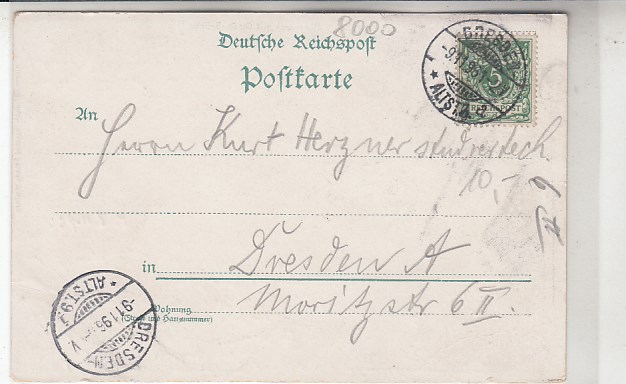 8000
Deutsche Reichspost
Postkarte
DRESDEN
-9.11.96
* ALTST.
5
REICHSPOST
An Herrn Kurt Herzner stud. rer. tech.
10,-
in Dresden A
Wohnung Moritzstr 6 II.
(Straße und Hausnummer)
* ALTST. 9.
-9.11.96. V
DRESDEN